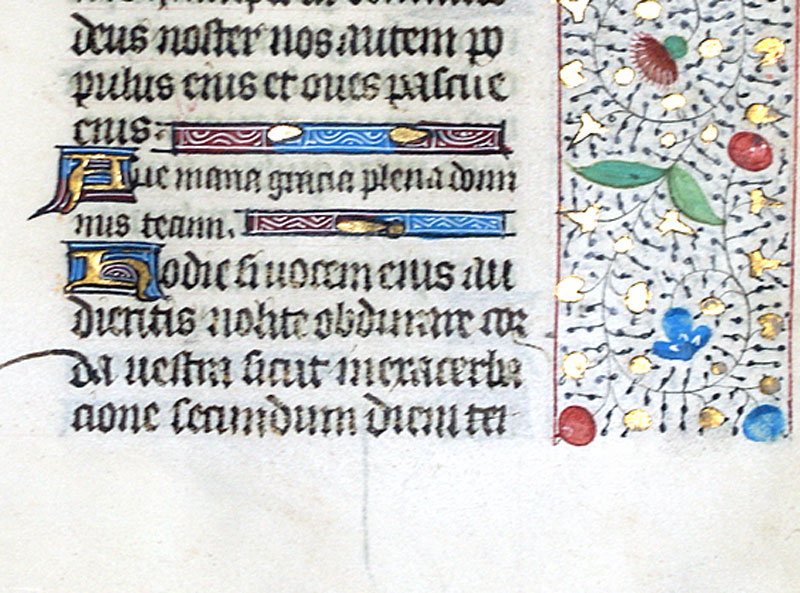 deus noster nos autem po
pulus eius et oues pascue
eius:
Aue maria gracia plena domi
nus tecum.
Hodie si uocem eius au
dieritis nolite obdurare cor
da uestra sicut in exacerba
cione secundum diem tem